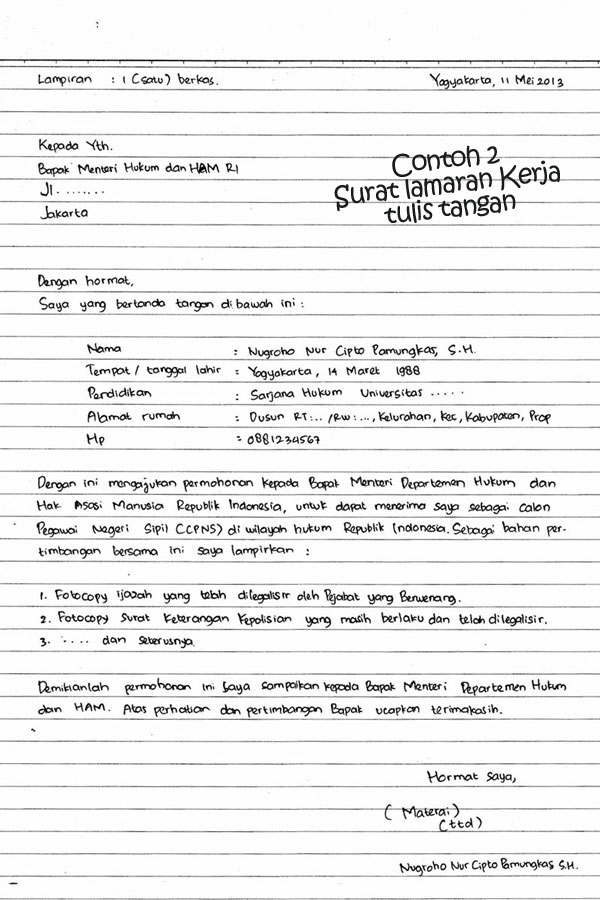 Lampiran : 1 (satu) berkas.
Yogyakarta, 11 Mei 2013
Kepada Yth.
Bapak Menteri Hukum dan HAM RI
Jl. .......
Jakarta
Contoh 2
Surat lamaran Kerja
tulis tangan
Dengan hormat,
Saya yang bertanda tangan dibawah ini :
Nama : Nugroho Nur Cipto Pamungkas, S.H.
Tempat / tanggal lahir : Yogyakarta, 14 Maret 1988
Pendidikan : Sarjana Hukum Universitas .....
Alamat rumah : Dusun RT:... /RW:..., Kelurahan, Kec, Kabupaten, Prop
Hp : 0881234567
Dengan ini mengajukan permohonan kepada Bapak Menteri Departemen Hukum dan
Hak Asasi Manusia Republik Indonesia, untuk dapat menerima saya sebagai calon
Pegawai Negeri Sipil (CPNS) di wilayah hukum Republik Indonesia. Sebagai bahan per-
timbangan bersama ini saya lampirkan :
1. Fotocopy ijazah yang telah dilegalisir oleh Pejabat yang Berwenang.
2. Fotocopy Surat Keterangan Kepolisian yang masih berlaku dan telah dilegalisir.
3. ..... dan seterusnya.
Demikianlah permohonan ini Saya sampaikan kepada Bapak Menteri Departemen Hukum
dan HAM. Atas perhatian dan pertimbangan Bapak ucapkan terimakasih.
Hormat saya,
( Materai )
(ttd)
Nugroho Nur Cipto Pamungkas S.H.